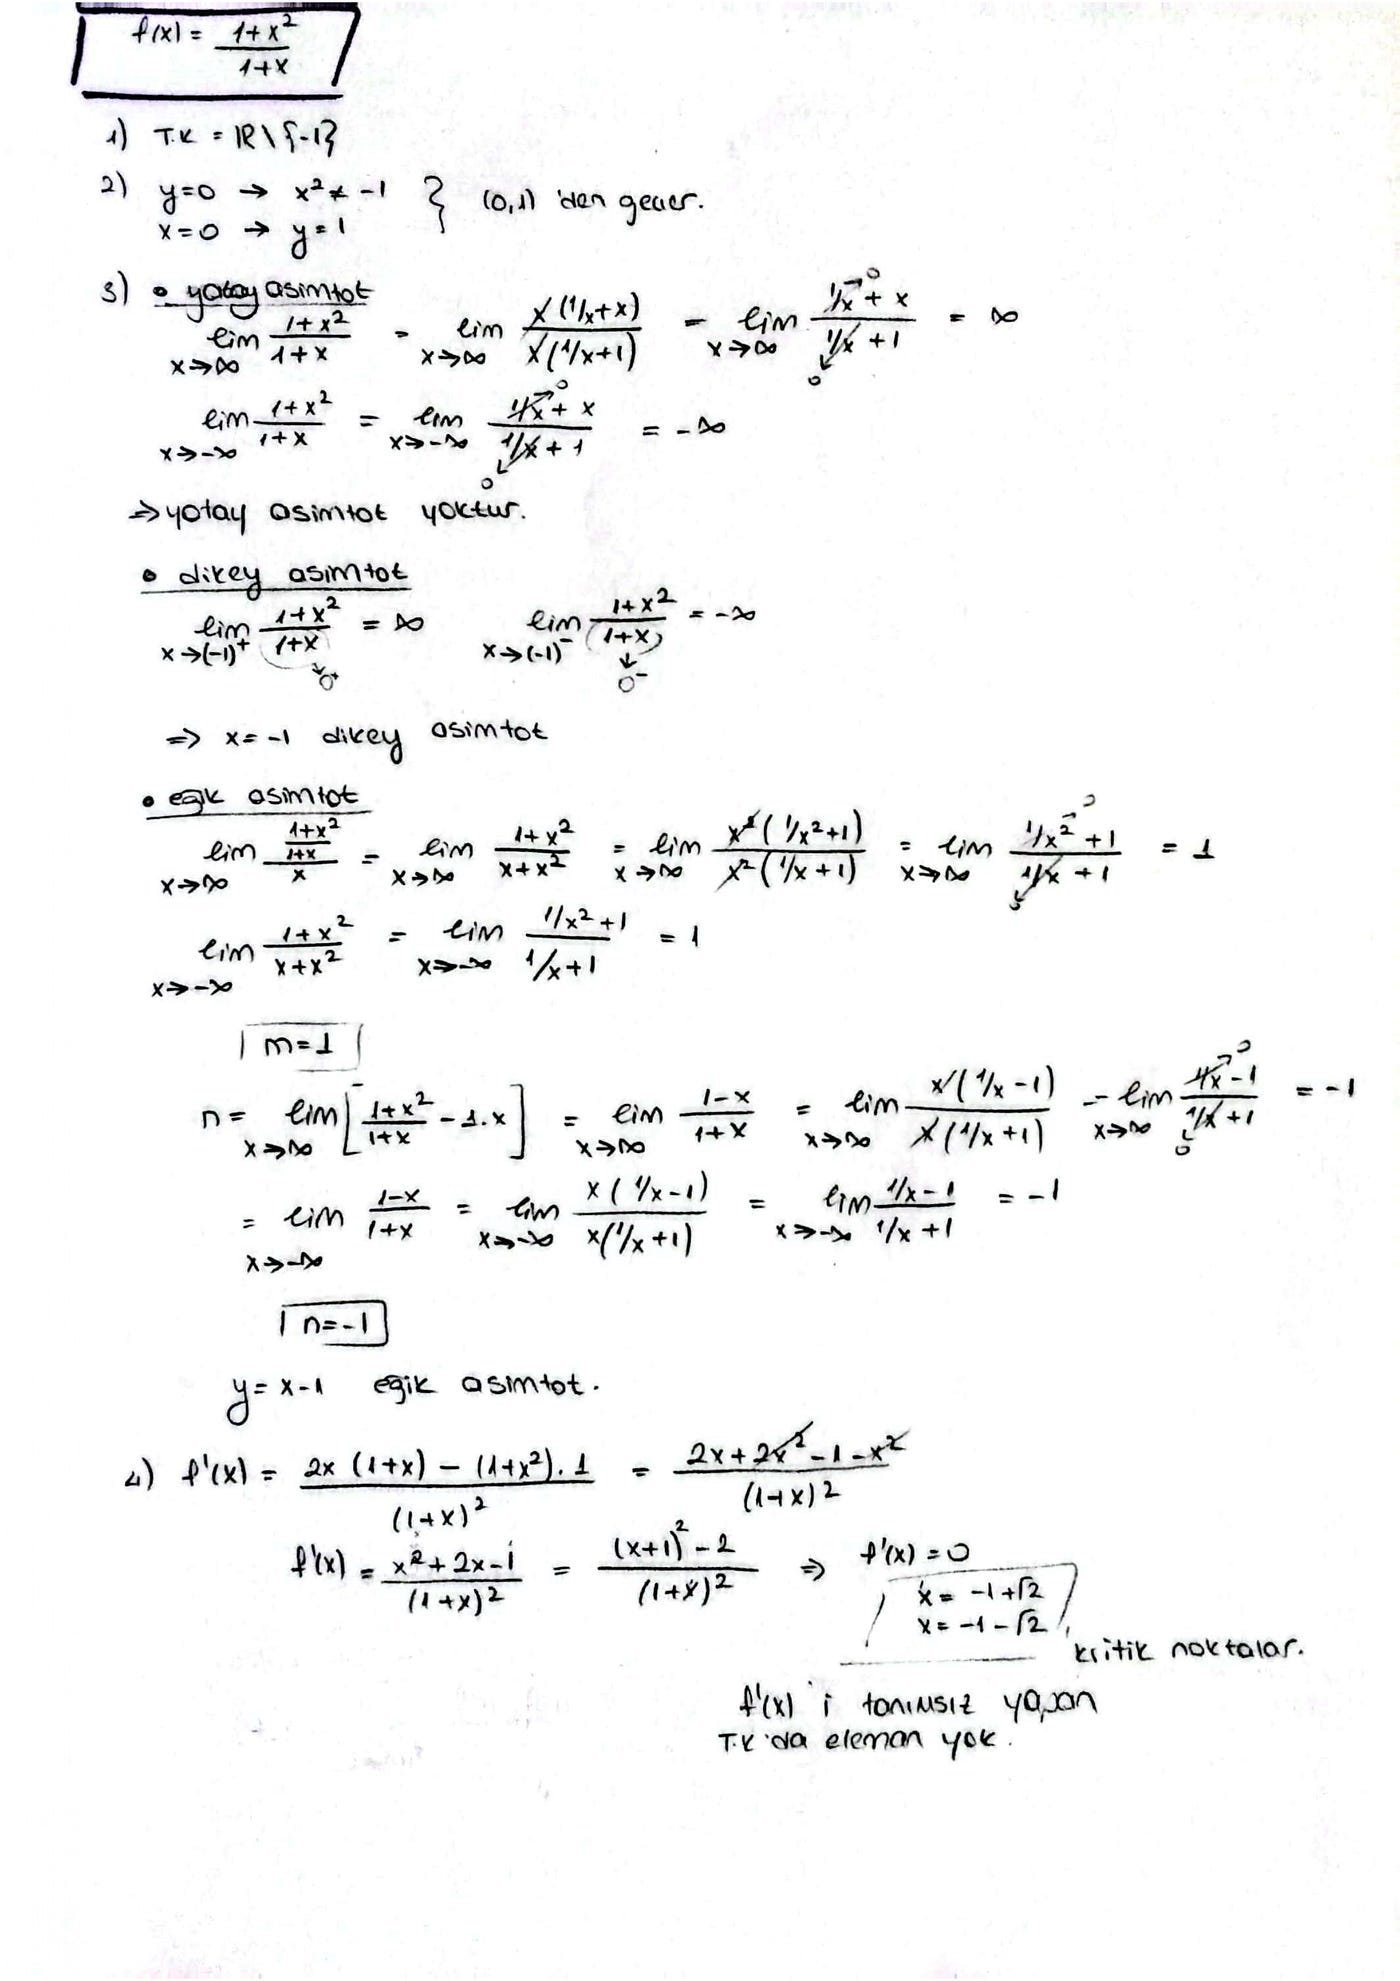 f(x) = (1+x²)/(1+x)
1) T.K = ℝ \ {-1}
2) y=0 → x² ≠ -1 } (0,1) 'den geçer.
x=0 → y=1
3) • yatay asimtot
lim x→∞ (1+x²)/(1+x) = lim x→∞ x(1/x+x)/x(1/x+1) = lim x→∞ (1/x→0 + x)/(1/x→0 + 1) = ∞
lim x→-∞ (1+x²)/(1+x) = lim x→-∞ (1/x→0 + x)/(1/x→0 + 1) = -∞
⇒ yatay asimtot yoktur.
• dikey asimtot
lim x→(-1)⁺ (1+x²)/(1+x)→0⁺ = ∞ lim x→(-1)⁻ (1+x²)/(1+x)→0⁻ = -∞
⇒ x=-1 dikey asimtot
• eğik asimtot
lim x→∞ ((1+x²)/(1+x))/x = lim x→∞ (1+x²)/(x+x²) = lim x→∞ x²(1/x²+1)/x²(1/x+1) = lim x→∞ (1/x²→0 + 1)/(1/x→0 + 1) = 1
lim x→-∞ (1+x²)/(x+x²) = lim x→-∞ (1/x²+1)/(1/x+1) = 1
m=1
n= lim x→∞ [(1+x²)/(1+x) - 1.x] = lim x→∞ (1-x)/(1+x) = lim x→∞ x(1/x-1)/x(1/x+1) = lim x→∞ (1/x→0 - 1)/(1/x→0 + 1) = -1
= lim x→-∞ (1-x)/(1+x) = lim x→-∞ x(1/x-1)/x(1/x+1) = lim x→-∞ (1/x-1)/(1/x+1) = -1
n=-1
y= x-1 eğik asimtot.
4) f'(x) = (2x(1+x) - (1+x²).1)/(1+x)² = (2x+2x²-1-x²)/(1+x)²
f'(x) = (x²+2x-1)/(1+x)² = ((x+1)²-2)/(1+x)² ⇒ f'(x)=0
x= -1+√2
x= -1-√2
kritik noktalar.
f'(x) 'i tanımsız yapan
T.K 'da eleman yok.